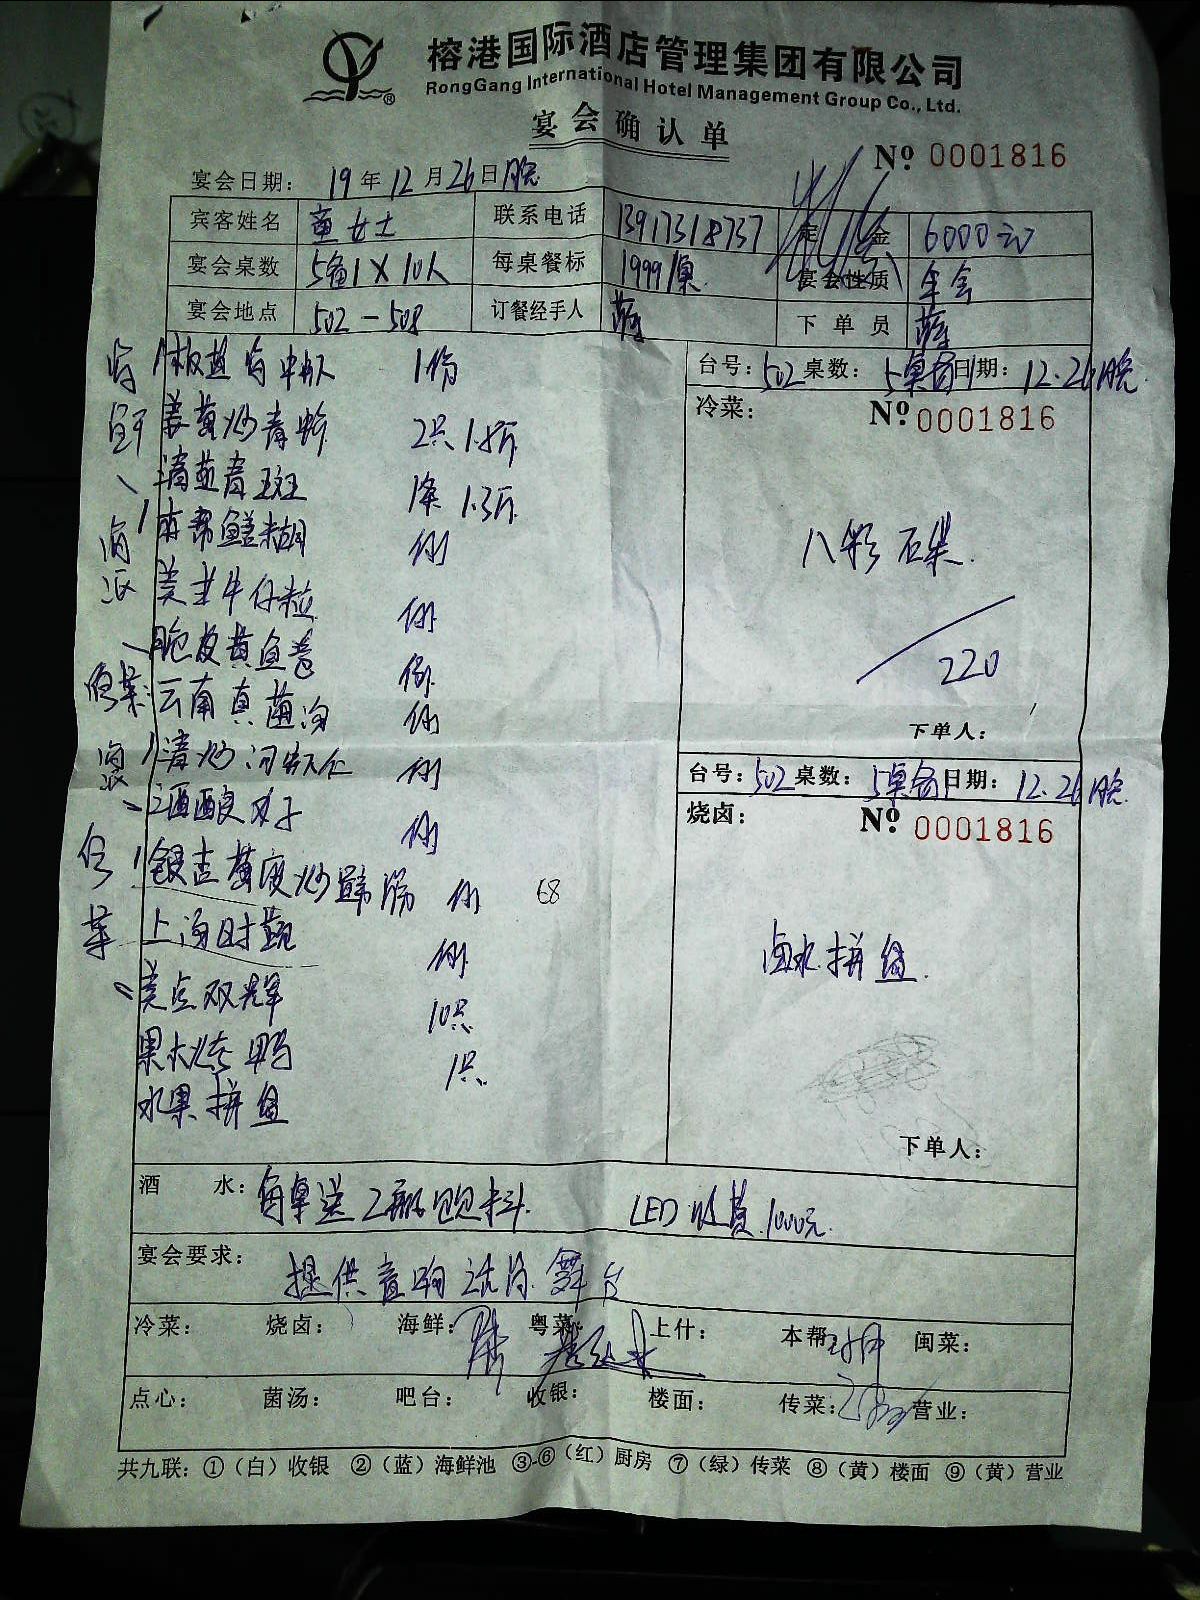 榕港国际酒店管理集团有限公司
RongGang International Hotel Management Group Co., Ltd.
宴会确认单
№ 0001816
宴会日期: 19年12月26日晚
宾客姓名 童女士 联系电话 13917318737 定金 6000元
宴会桌数 5备1×10人 每桌餐标 1999/桌 宴会性质 年会
宴会地点 502-508 订餐经手人 下单员
台号: 502 桌数: 5桌备1 日期: 12.26晚
冷菜: № 0001816
八彩石集
220
下单人:
台号: 502 桌数: 5桌备1 日期: 12.26晚
烧卤: № 0001816
卤水拼盘
下单人:
海鲜、海派
粤菜、海派
点菜
椒盐 1份
姜葱炒青蟹 2只 1.8斤
清蒸青斑 1条 1.3斤
本帮鳝糊 例
美式牛仔粒 例
脆皮黄鱼卷 例
云南真菌汤 例
清炒河虾仁 例
酒酿 例
银杏 炒 例 68
上海时蔬 例
美点双辉 10只
果木烤鸭 1只
水果拼盘
酒水: 每桌送2瓶饮料 LED收费1000元
宴会要求: 提供音响 舞台
冷菜: 烧卤: 海鲜: 粤菜: 上什: 本帮: 闽菜:
点心: 菌汤: 吧台: 收银: 楼面: 传菜: 营业:
共九联: ①(白)收银 ②(蓝)海鲜池 ③-⑥(红)厨房 ⑦(绿)传菜 ⑧(黄)楼面 ⑨(黄)营业